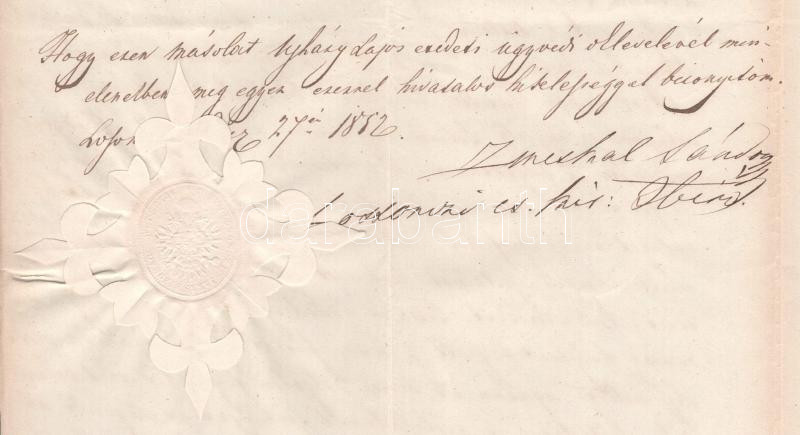 Hogy ezen másolat Ujházy Lajos eredeti ügyvédi oklevelével min-
denekben meg egyez ezennel hivatalos hitelességgel bizonyitom.
27én 1852.
Zmeskal Sándor
Lossonczi cs. kir: Sbiró.
darabanth